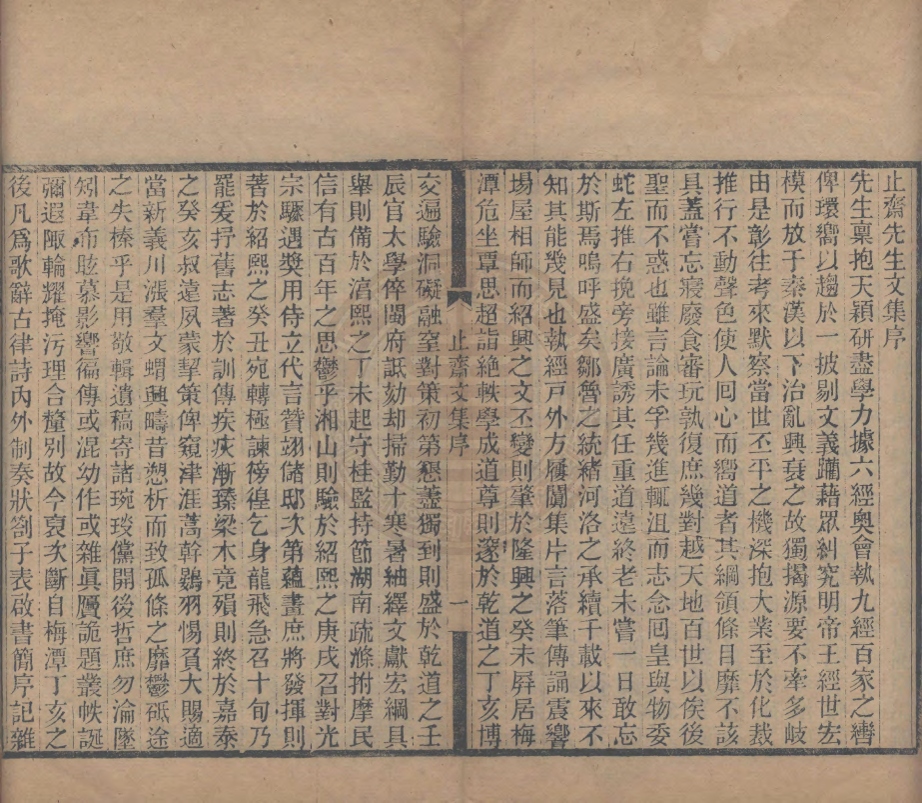 止齋先生文集序
先生稟抱天穎研盡學力據六經奧會執九經百家之轡
俾環嚮以趨於一披剔文義躪藉眾糾究明帝王經世宏
模而放于秦漢以下治亂興衰之故獨揭源要不牽多岐
由是彰往考來默察當世丕平之機深抱大業至於化裁
推行不動聲色使人囘心而嚮道者其綱領條目靡不該
具蓋嘗忘寢廢食審玩孰復庶幾對越天地百世以俟後
聖而不惑也雖言論未孚幾進輒沮而志念囘皇與物委
蛇左推右挽旁接廣誘其任重道遠終老未嘗一日敢忘
於斯焉嗚呼盛矣鄒魯之統緒河洛之承續千載以來不
知其能幾見也執經戸外方屨闐集片言落筆傳誦震響
場屋相師而紹興之文丕變則肇於隆興之癸未屏居梅
潭危坐覃思超詣絶軼學成道尊則邃於乾道之丁亥博
止齋文集序
一
交遍驗洞礙融窒對策初第懇盡獨到則盛於乾道之壬
辰官太學倅閩府詆劾却掃勤十寒暑紬繹文獻宏綱具
舉則備於淳熙之丁未起守桂監持節湖南疏滌拊摩民
信有古百年之思鬱乎湘山則驗於紹熙之庚戌召對光
宗驟遇奬用侍立代言贊翊儲邸次第蘊畫庶將發揮則
著於紹熙之癸丑宛轉極諫徬徨乞身龍飛急召十旬乃
罷爰抒舊志著於訓傳疾疢漸臻梁木竟殞則終於嘉泰
之癸亥叔遠夙蒙挈策俾窺津涯蒿幹鷃羽惕負大賜適
當新義川漲羣文蝟興疇昔愬析而致孤條之靡鬱砥途
之失榛乎是用敬輯遺稿寄諸琬琰儻開後哲庶勿淪墜
矧韋布眩慕影響徧傳或混幼作或雜眞贗詭題叢帙誕
彌遐陬輪耀掩汚理合釐别故今裒次斷自梅潭丁亥之
後凡爲歌辭古律詩内外制奏狀劄子表啟書簡序記雜